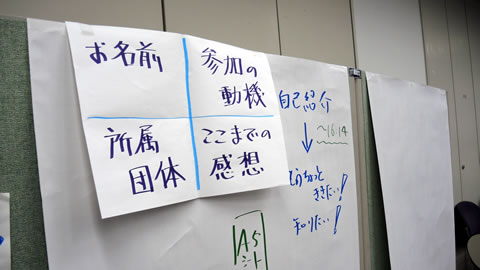 お名前
参加の
動機
所属
団体
ここまでの
感想
自己紹介
〜16:14
もうちょっと
ききたい!
知りたい!
A5
シート